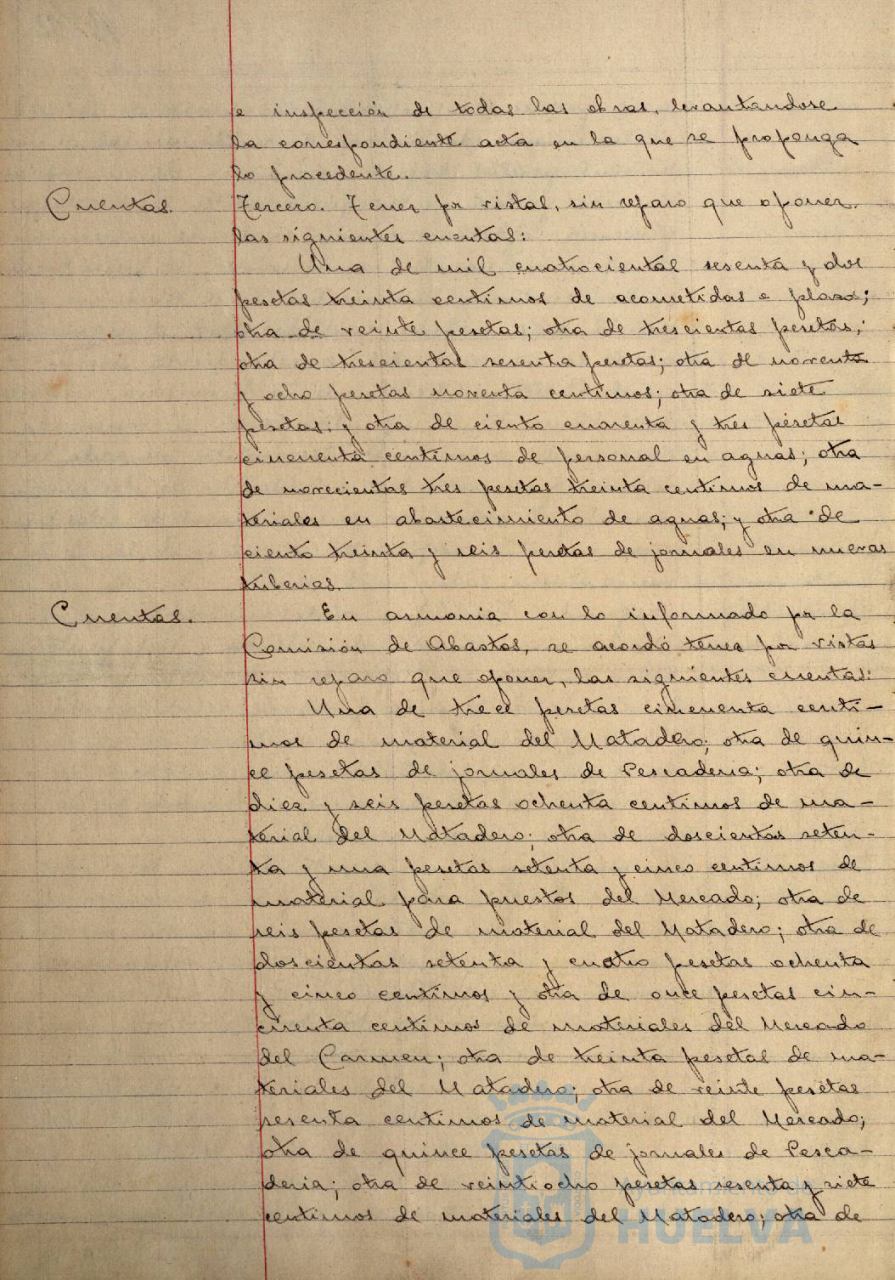 e inspección de todas las obras, levantandose
la correspondiente acta en la que se proponga
lo procedente.
Cuentas. Tercero. Tener por vistas, sin reparo que oponer,
las siguientes cuentas:
Una de mil cuatrocientas sesenta y dos
pesetas treinta centimos de acometidas a plazos;
otra de veinte pesetas; otra de trescientas pesetas;
otra de trescientas sesenta pesetas; otra de noventa
y ocho pesetas noventa centimos; otra de siete
pesetas; y otra de ciento cuarenta y tres pesetas
cincuenta centimos de personal en aguas; otra
de novecientas tres pesetas treinta centimos de ma-
teriales en abastecimiento de aguas; y otra de
ciento treinta y seis pesetas de jornales en nuevas
tuberias.
Cuentas. En armonia con lo informado por la
Comisión de Abastos, se acordó tener por vistas
sin reparo que oponer, las siguientes cuentas:
Una de trece pesetas cincuenta centi-
mos de material del Matadero; otra de quin-
ce pesetas de jornales de Pescaderia; otra de
diez y seis pesetas ochenta centimos de ma-
terial del Matadero; otra de doscientas seten-
ta y una pesetas setenta y cinco centimos de
material para puestos del Mercado; otra de
seis pesetas de material del Matadero; otra de
doscientas setenta y cuatro pesetas ochenta
y cinco centimos y otra de once pesetas cin-
cuenta centimos de materiales del Mercado
del Carmen; otra de treinta pesetas de ma-
teriales del Matadero; otra de veinte pesetas
sesenta centimos de material del Mercado;
otra de quince pesetas de jornales de Pesca-
deria; otra de veintiocho pesetas sesenta y siete
centimos de materiales del Matadero; otra de
HUELVA